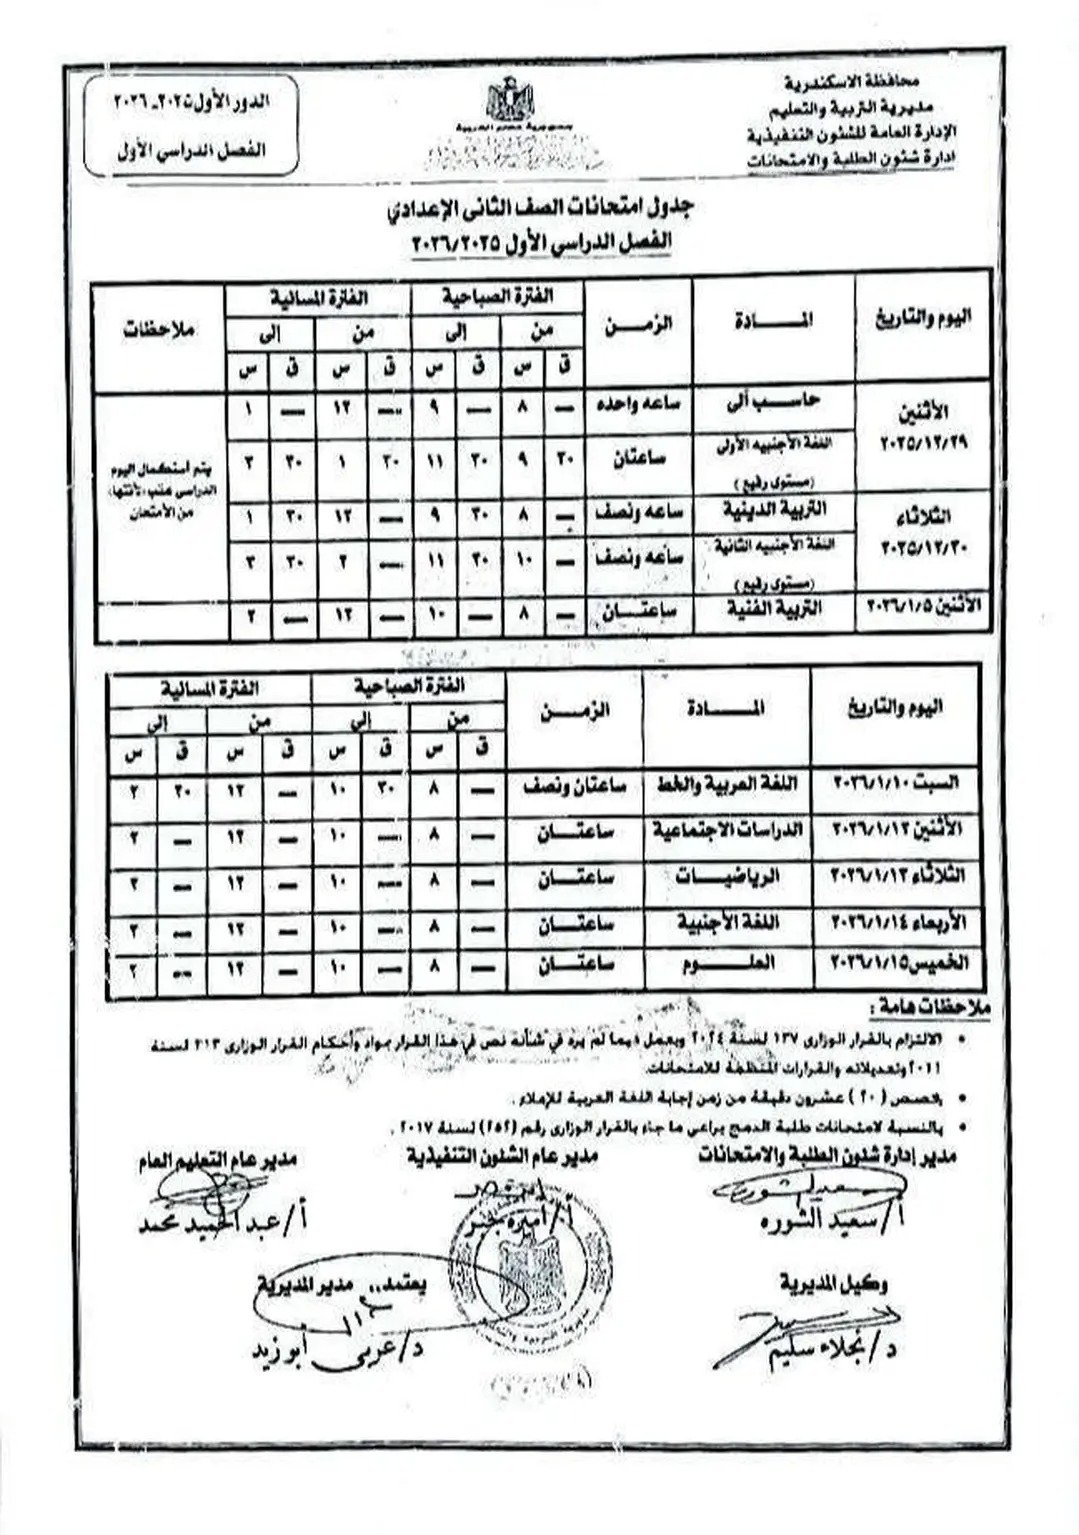 محافظة الاسكندرية
مديرية التربية والتعليم
الإدارة العامة للشئون التنفيذية
ادارة شئون الطلبة والامتحانات
جمهورية مصر العربية
الدور الأول ٢٠٢٥ـ ٢٠٢٦
الفصل الدراسي الأول
جدول امتحانات الصف الثانى الإعدادي
الفصل الدراسي الأول ٢٠٢٦/٢٠٢٥
اليوم والتاريخ المـــادة الزمـــن الفترة الصباحية الفترة المسائية ملاحظات
من إلى من إلى
ق س ق س ق س ق س
الأثنين ٢٠٢٥/١٢/٢٩ حاسب ألى ساعه واحده — ٨ — ٩ — ١٢ — ١
اللغة الأجنبيه الأولى (مستوى رفيع) ساعتان ٣٠ ٩ ٣٠ ١١ ٣٠ ١ ٣٠ ٣
يتم أستكمال اليوم الدراسى عقب الأنتهاء من الأمتحان
الثلاثاء ٢٠٢٥/١٢/٣٠ التربية الدينية ساعه ونصف — ٨ ٣٠ ٩ — ١٢ ٣٠ ١
اللغة الأجنبيه الثانية (مستوى رفيع) ساعه ونصف — ١٠ ٣٠ ١١ — ٢ ٣٠ ٣
الأثنين ٢٠٢٦/١/٥ التربية الفنية ساعتـــان — ٨ — ١٠ — ١٢ — ٢
اليوم والتاريخ المـــادة الزمـــن الفترة الصباحية الفترة المسائية
من إلى من إلى
ق س ق س ق س ق س
السبت ٢٠٢٦/١/١٠ اللغة العربية والخط ساعتان ونصف — ٨ ٣٠ ١٠ — ١٢ ٣٠ ٢
الأثنين ٢٠٢٦/١/١٢ الدراسات الاجتماعية ساعتـــان — ٨ — ١٠ — ١٢ — ٢
الثلاثاء ٢٠٢٦/١/١٣ الرياضيـــات ساعتـــان — ٨ — ١٠ — ١٢ — ٢
الأربعاء ٢٠٢٦/١/١٤ اللغة الأجنبية ساعتـــان — ٨ — ١٠ — ١٢ — ٢
الخميس ٢٠٢٦/١/١٥ العلـــوم ساعتـــان — ٨ — ١٠ — ١٢ — ٢
ملاحظات هامة :
• الالتزام بالقرار الوزارى ١٣٧ لسنة ٢٠٢٤ ويعمل فيما لم يرد في شأنه نص في هذا القرار بمواد وأحكام القرار الوزارى ٣١٣ لسنة
٢٠١١ وتعديلاته والقرارات المنظمة للامتحانات.
• يخصص ( ٢٠ ) عشرون دقيقة من زمن إجابة اللغة العربية للإملاء .
• بالنسبة لامتحانات طلبة الدمج يراعى ما جاء بالقرار الوزارى رقم (٢٥٢) لسنة ٢٠١٧ .
مدير إدارة شئون الطلبة والامتحانات مدير عام الشئون التنفيذية مدير عام التعليم العام
أ/ سعيد الشوره أ/ أميرة خضر أ/ عبد الحميد محمد
وكيل المديرية يعتمد.. مدير المديرية
د/ نجلاء سليم د/ عربى أبو زيد